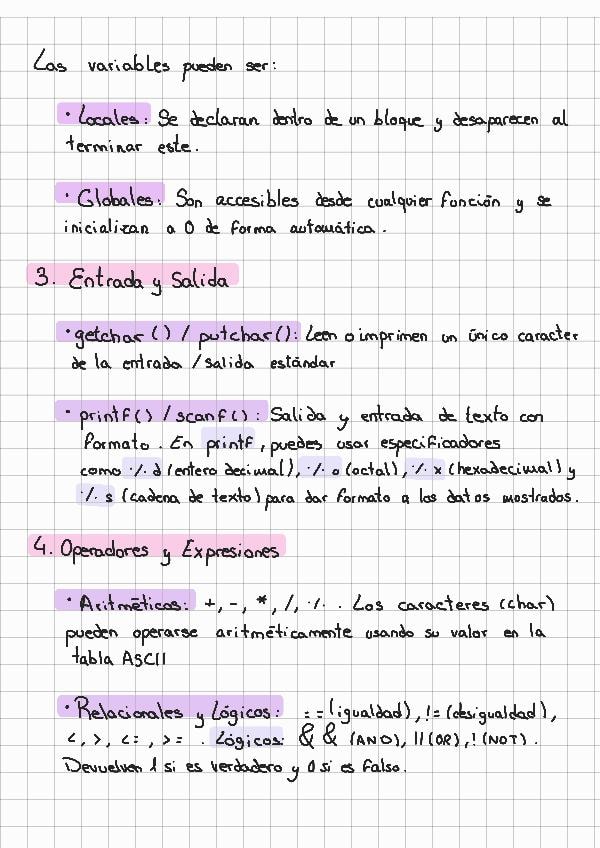 Las variables pueden ser:
· Locales: Se declaran dentro de un bloque y desaparecen al
terminar este.
· Globales: Son accesibles desde cualquier función y se
inicializan a 0 de forma automática.
3. Entrada y Salida
· getchar () / putchar(): Leen o imprimen un único caracter
de la entrada / salida estándar
· printf() / scanf(): Salida y entrada de texto con
Formato. En printf, puedes usar especificadores
como % d (entero decimal), % o (octal), % x (hexadecimal) y
% s (cadena de texto) para dar formato a los datos mostrados.
4. Operadores y Expresiones
· Aritméticos: +, -, *, /, % . Los caracteres (char)
pueden operarse aritméticamente usando su valor en la
tabla ASCII
· Relacionales y Lógicos: == (igualdad), != (desigualdad),
<, >, <=, >= . Lógicos: && (AND), || (OR), ! (NOT).
Devuelven 1 si es verdadero y 0 si es falso.